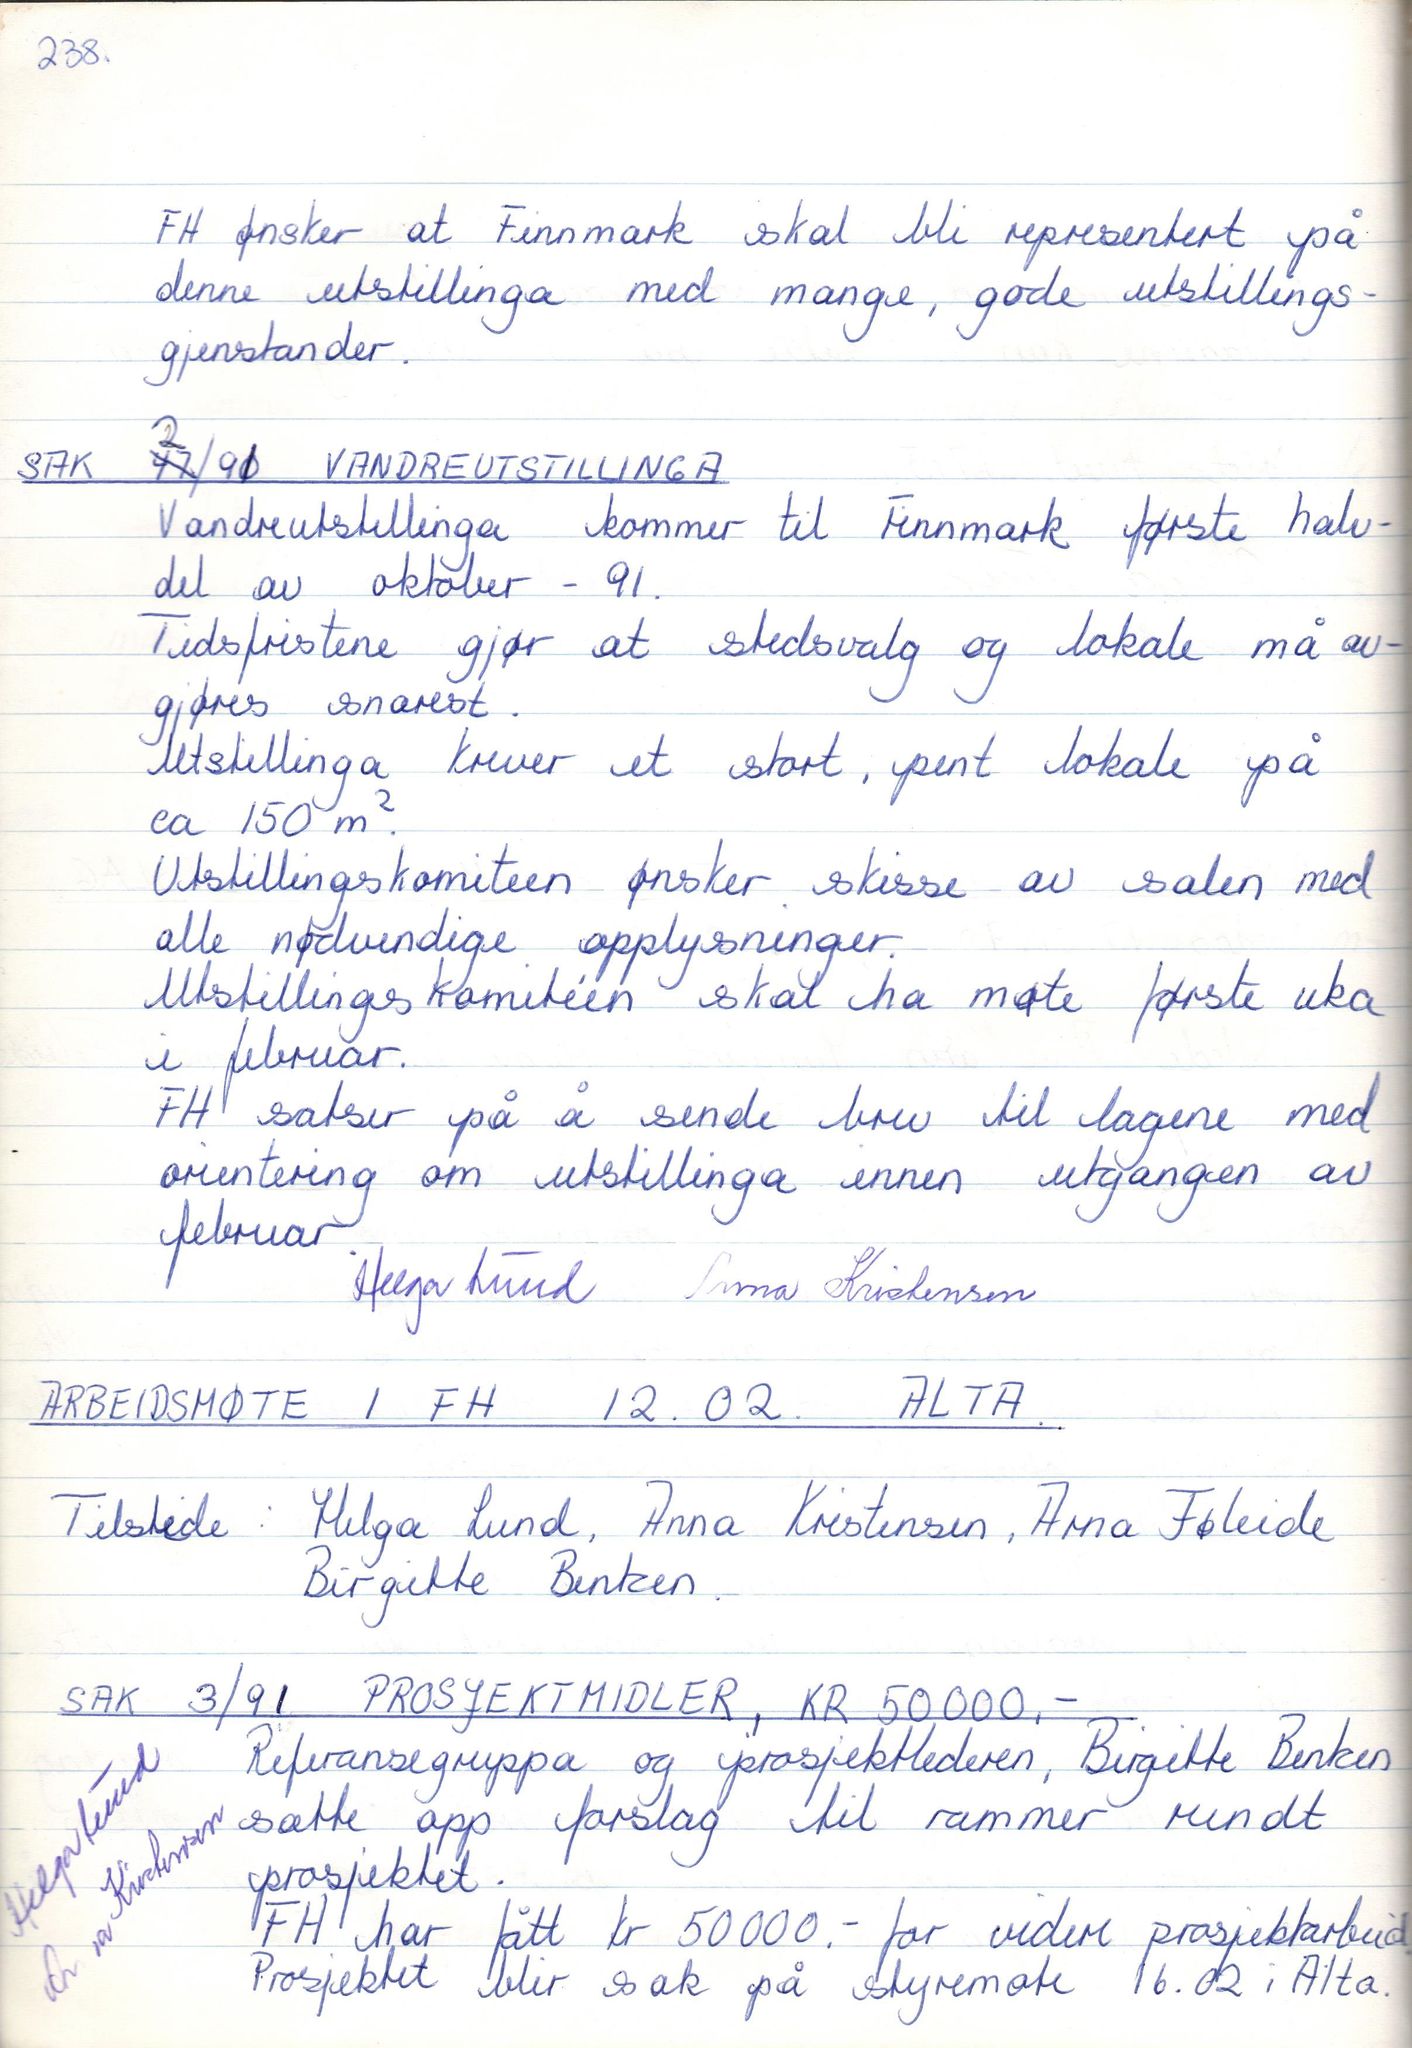 238.
FH ønsker at Finnmark skal bli representert på
denne utstillinga med mange, gode utstillings-
gjenstander.
2
SAK 77/91 VANDREUTSTILLINGA
Vandreutstillinga kommer til Finnmark første halv-
del av oktober - 91.
Tidsfristene gjør at stedsvalg og lokale må av-
gjøres snarest.
Utstillinga krever et stort, pent lokale på
ca 150 m².
Utstillingskomiteen ønsker skisse av salen med
alle nødvendige opplysninger.
Utstillingskomitéen skal ha møte første uka
i februar.
FH satser på å sende brev til lagene med
orientering om utstillinga innen utgangen av
februar.
Helga Lund Anna Kristensen
ARBEIDSMØTE I FH 12.02. ALTA.
Tilstede: Helga Lund, Anna Kristensen, Arna Føleide
Birgitte Benken.
SAK 3/91 PROSJEKTMIDLER, KR 50000,-
Referansegruppa og prosjektlederen, Birgitte Benken
satte opp forslag til rammer rundt
prosjektet.
FH har fått kr 50000.- for videre prosjektarbeid.
Prosjektet blir sak på styremøte 16.02 i Alta.
Helga Lund
Anna Kristensen